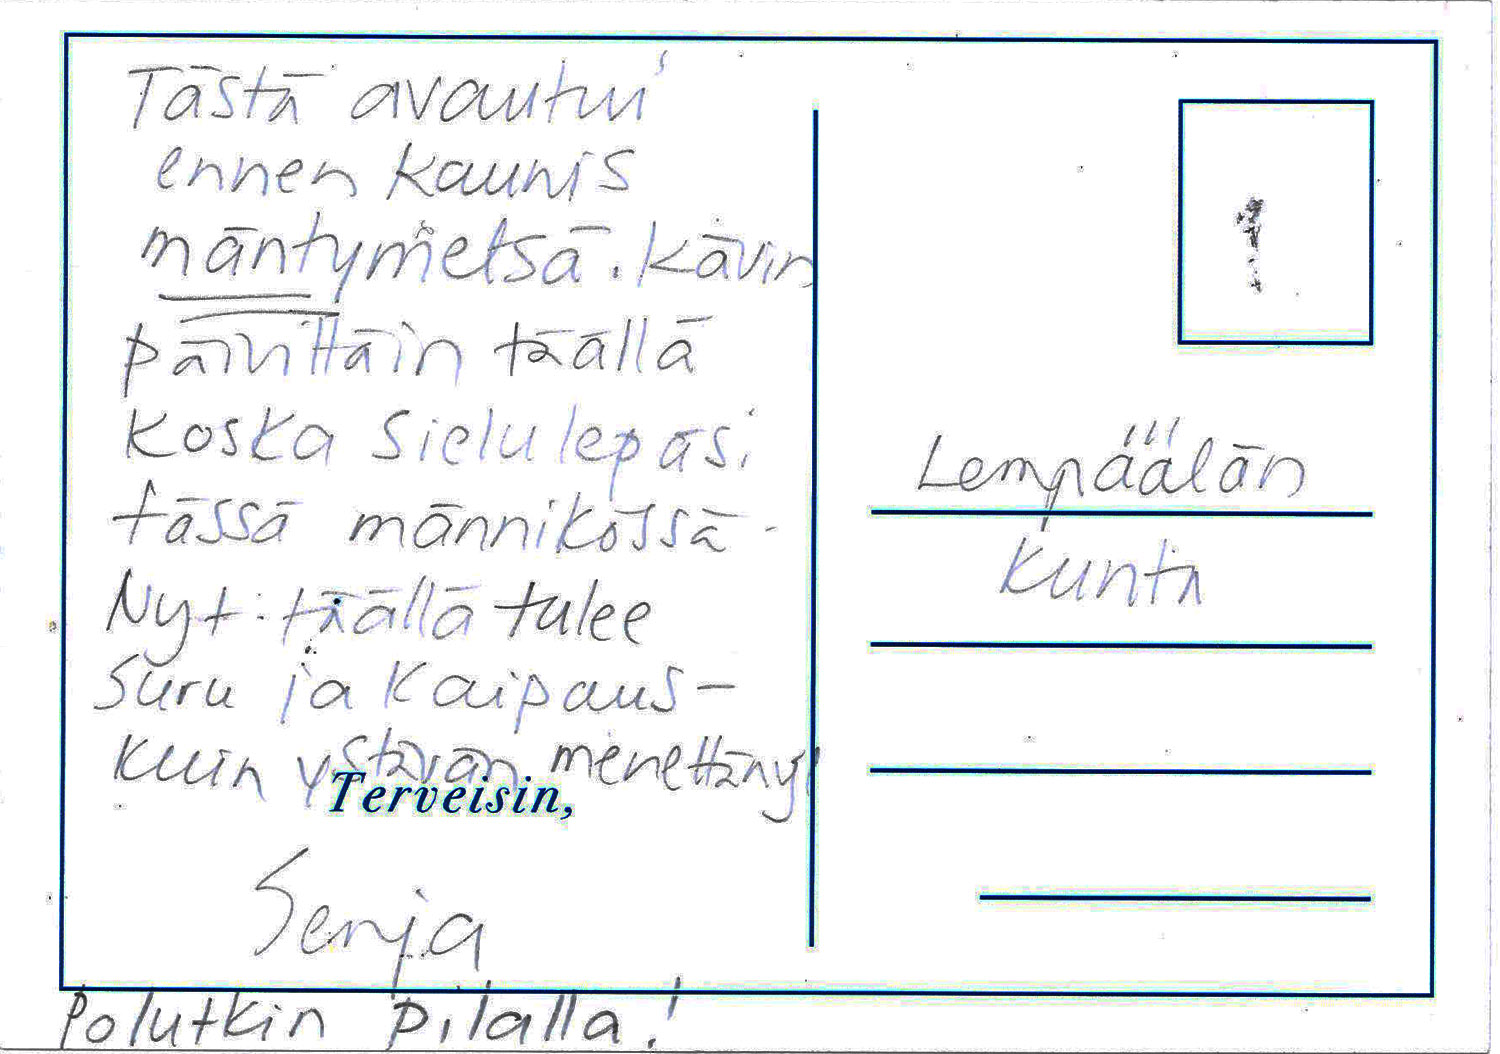 Tästä avautui
ennen kaunis
mäntymetsä. Kävin
päivittäin täällä
koska sielu lepäsi
tässä männikössä -
Nyt täällä tulee
suru ja kaipaus -
kuin ystävän menettänyt
Terveisin,
Senja
Polutkin pilalla!
Lempäälän
kunta